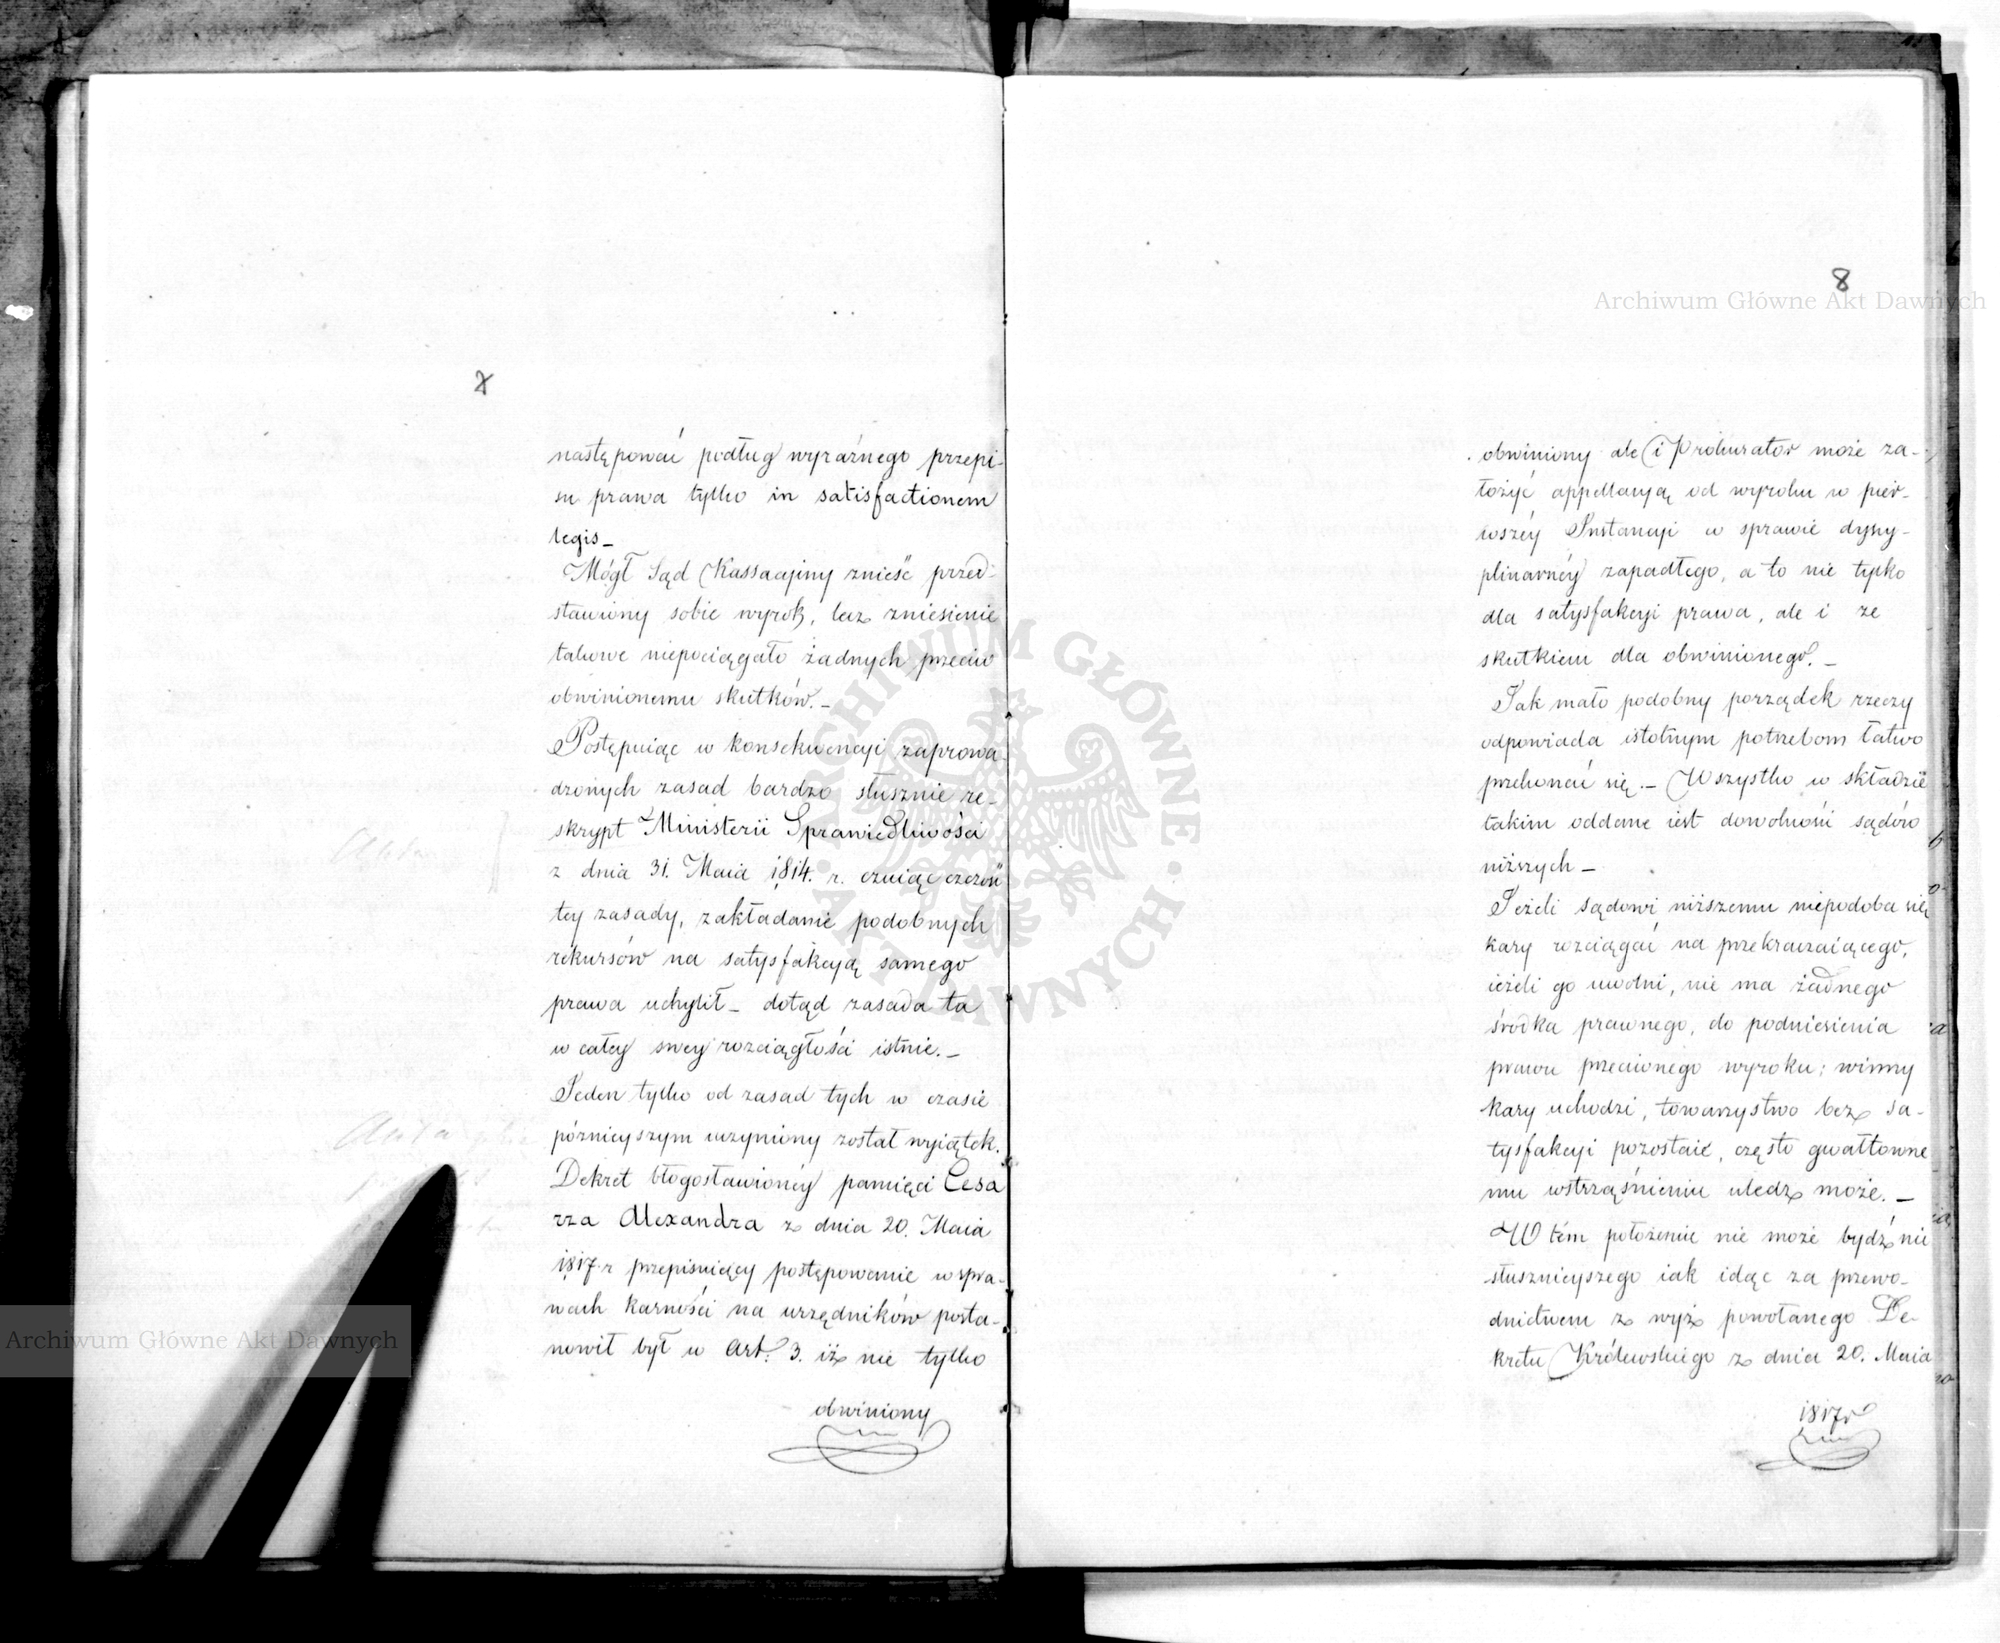 następować podług wyraźnego przepi-
su prawa tylko in satisfactionem
legis_
Mógł Sąd Kassacyjny znieść przed-
stawiony sobie wyrok, lecz zniesienie
takowe niepociągało żadnych przeciw
obwinionemu skutków._
Postępuiąc w konsekwencyi zaprowa-
dzonych zasad bardzo słusznie re-
skrypt Ministerii Sprawiedliwości
z dnia 31. Maia 1814. r. czuiąc czczość
tey zasady, zakładanie podobnych
rekursów na satysfakcyą samego
prawa uchylił_ dotąd zasada ta
w całey swey rozciągłości istnie._
Jeden tylko od zasad tych w czasie
póznieyszym uczyniony został wyiątek.
Dekret błogosławionéy pamięci Cesa
rza Alexandra z dnia 20. Maia
1817. r przepisuiący postępowanie w spra-
wach karności na urzędników posta-
nowił był w Art: 3. iż nie tylko
obwiniony
8
obwiniony ale i Prokurator może za-
łożyć appellacyą od wyroku w pier-
wszéy Instancyi w sprawie dyscy-
plinarnéy zapadłego, a to nie tylko
dla satysfakcyi prawa, ale i ze
skutkiem dla obwinionego._
Jak mało podobny porządek rzeczy
odpowiada istotnym potrzebom łatwo
przekonać się._ Wszystko w składzie
takim oddane iest dowolności sądów
niższych_
Jeżeli sądowi niższemu niepodoba się
kary rozciągać na przekraczaiącego,
ieżeli go uwolni, nie ma żadnego
środka prawnego, do podniesienia
prawu przeciwnego wyroku; winny
kary uchodzi, towarzystwo bez sa-
tysfakcyi pozostaie, często gwałtowne
mu wstrząśnieniu uledz może._
W tém położeniu nie może bydź nic
słusznieyszego iak idąc za przewo-
dnictwem z wyż powołanego De-
kretu Królewskiego z dnia 20. Maia
1817 r
Archiwum Główne Akt Dawnych
Archiwum Główne Akt Dawnych
ARCHIWUM GŁÓWNE AKT DAWNYCH